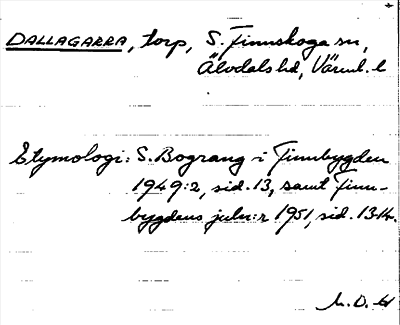 DALLAGARRA, torp, S. Finnskoga sn,
Älvdals hd, Värml. l
Etymologi: S. Bograng i Finnbygden
1949:2, sid. 13, samt Finn-
bygdens julnr 1951, sid. 13-14.